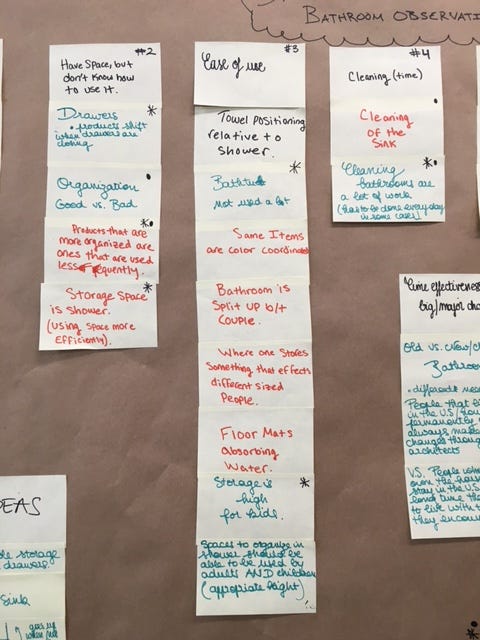 BATHROOM OBSERVATI
#2
Have Space, but
don't know how
to use it.
Drawers *
• products shift
when drawers are
closing
Organization •
Good vs. Bad
Products that are *•
more organized are
ones that are used
less frequently.
Storage Space *
is shower.
(Using space more
Efficiently).
#3
Ease of use
Towel positioning
relative to
shower.
*
Bathtub
not used a lot
Same Items
are color coordinated
Bathroom is
Split up b/t
Couple.
Where one Stores
Something that effects
different sized
People.
Floor Mats
absorbing
Water.
Storage is *
high
for kids.
Spaces to organize in
shower should be
able to be used by
adults AND children
(appropriate height)
#4
Cleaning (time)
•
Cleaning
of the
Sink
Cleaning *•
bathrooms are
a lot of work
(has to be done every day
in some cases)
effectiveness
big/major cha
Old vs. New/
Bathroo
• different nee
People that
in the U.S./
permanently
always make
changes throug
architects
V.S. People who
own the hous
stay in the U.S.
time the
to live with t
they encou
EAS
storage
drawers
Sink
when not